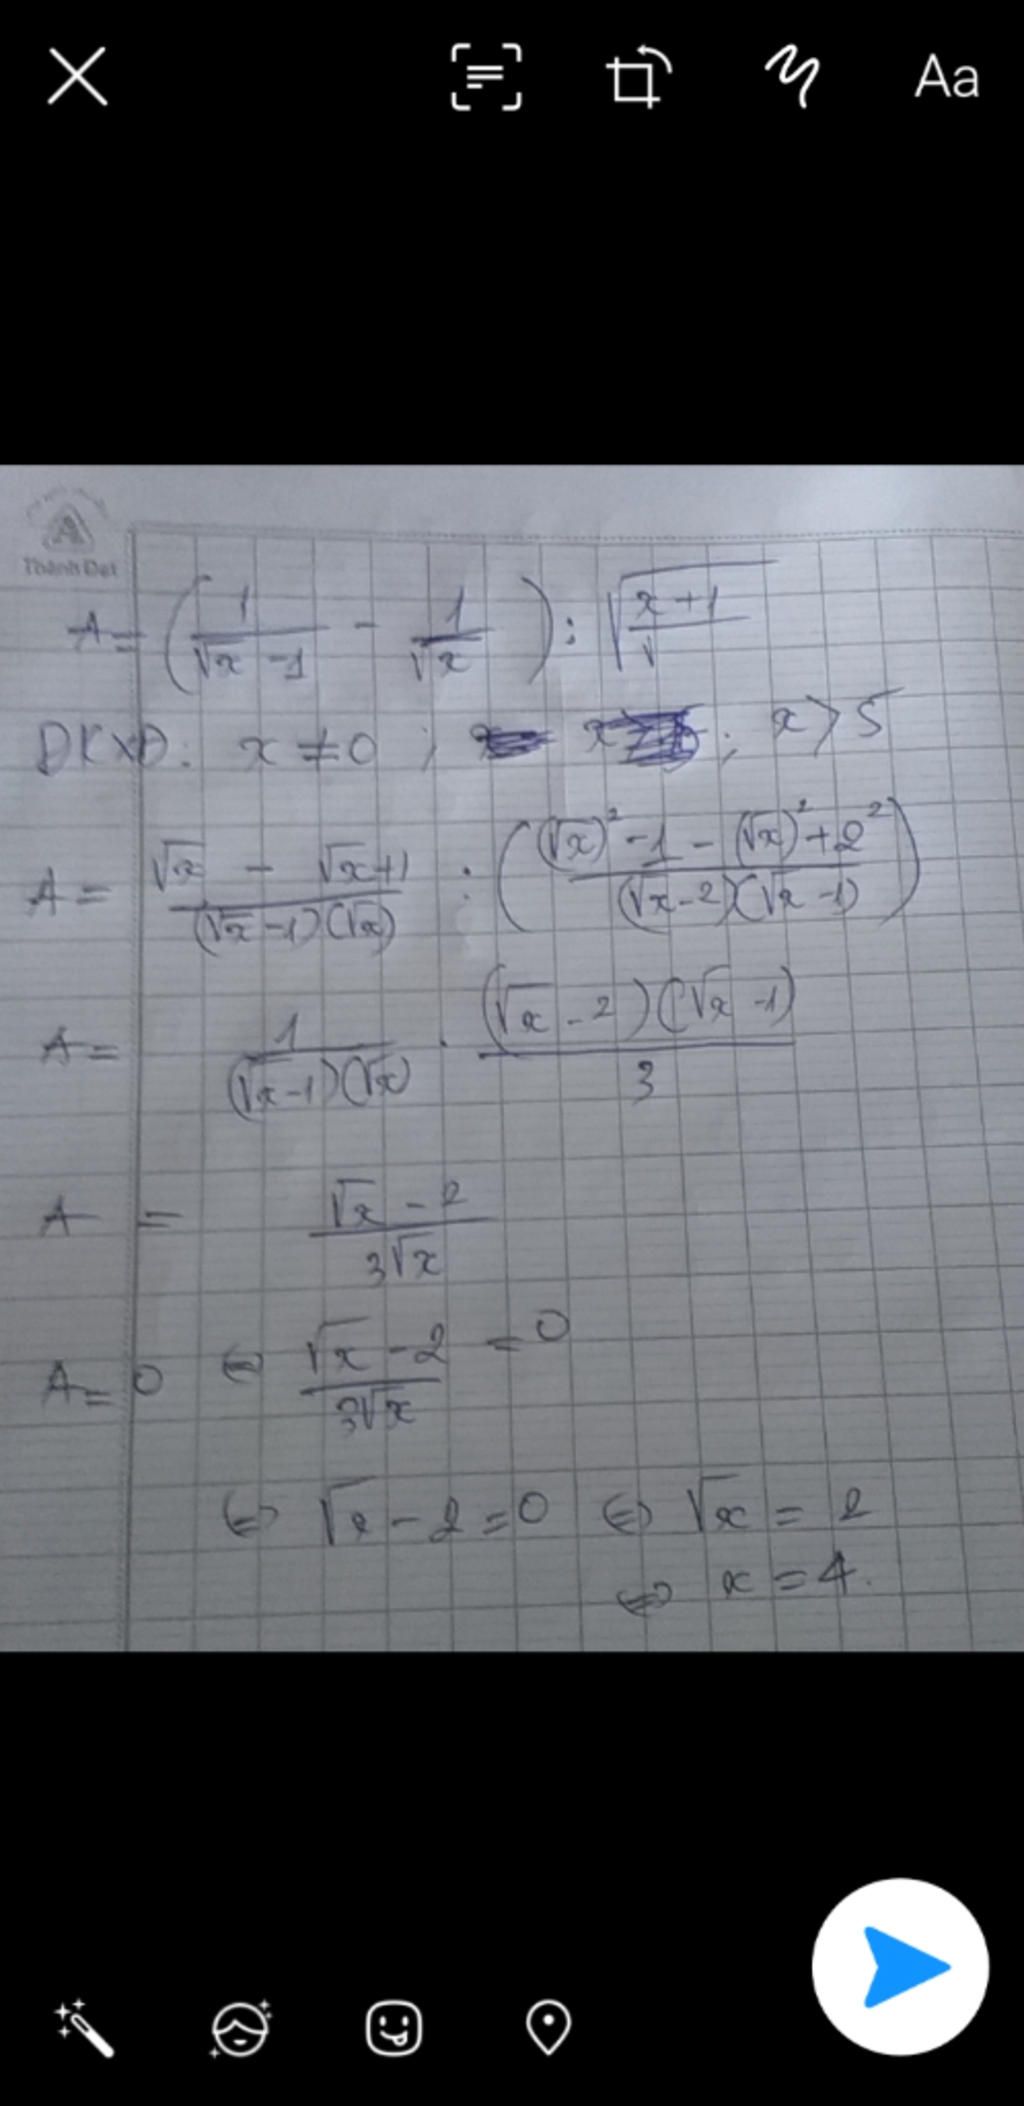 Aa
Thành Đạt
A = (1/(√x - 1) - 1/√x) : √((x+1)/√
ĐKXĐ: x ≠ 0 ; x ; x > 5
A = (√x - √x+1)/((√x-1)(√x)) : (((√x)² - 1 - (√x)² + 2²)/((√x-2)(√x-1)))
A = 1/((√x-1)(√x)) . ((√x - 2)(√x - 1))/3
A = (√x - 2)/(3√x)
A = 0 ⇔ (√x - 2)/(3√x) = 0
⇔ √x - 2 = 0 ⇔ √x = 2
⇔ x = 4.